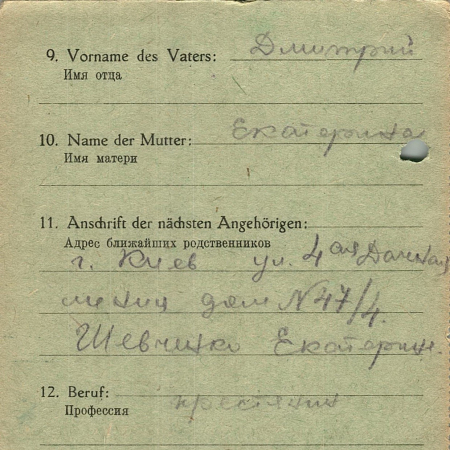 9. Vorname des Vaters: Дмитрий
Имя отца
10. Name der Mutter: Екатерина
Имя матери
11. Anschrift der nächsten Angehörigen:
Адрес ближайших родственников
г. Киев ул. 4 ая
линия дом N 47/4.
Шевченко Екатерине.
12. Beruf: крестянин
Профессия